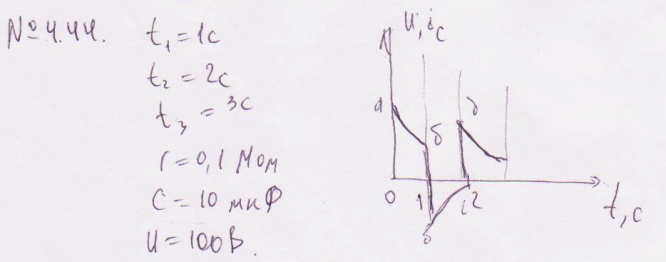 № 4.44. t₁ = 1с
t₂ = 2с
t₃ = 3с
r = 0,1 Мом
C = 10 мкФ
U = 100В.
U, i_c
а
б
0
1
2
t, с